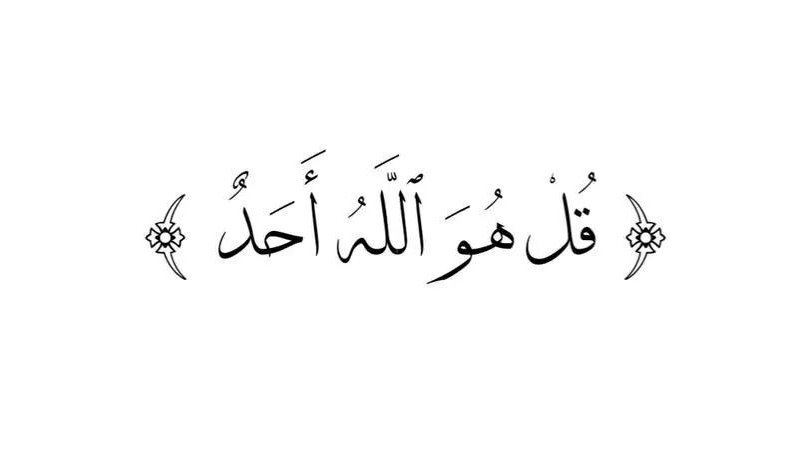 ﴿ قُلْ هُوَ ٱللَّهُ أَحَدٌ ﴾